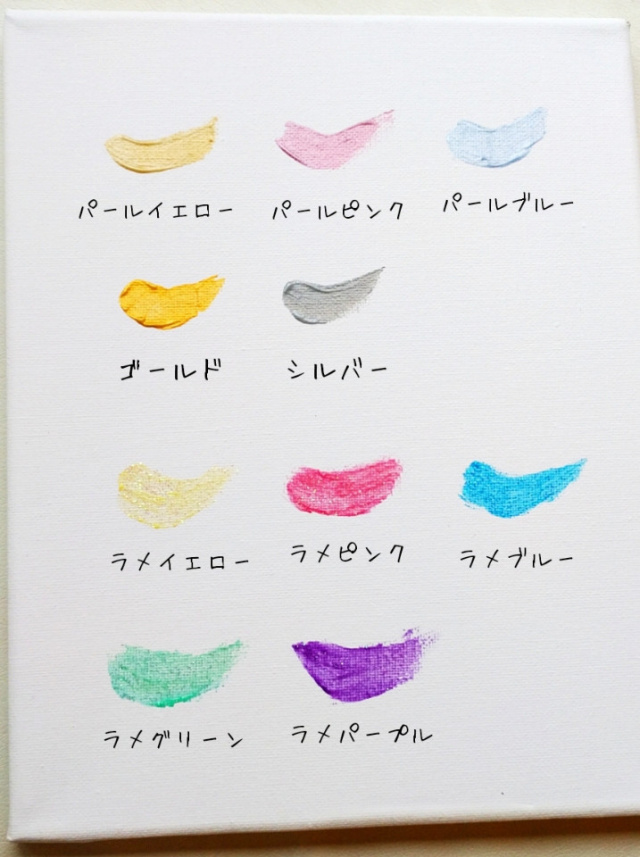 パールイエロー
パールピンク
パールブルー
ゴールド
シルバー
ラメイエロー
ラメピンク
ラメブルー
ラメグリーン
ラメパープル